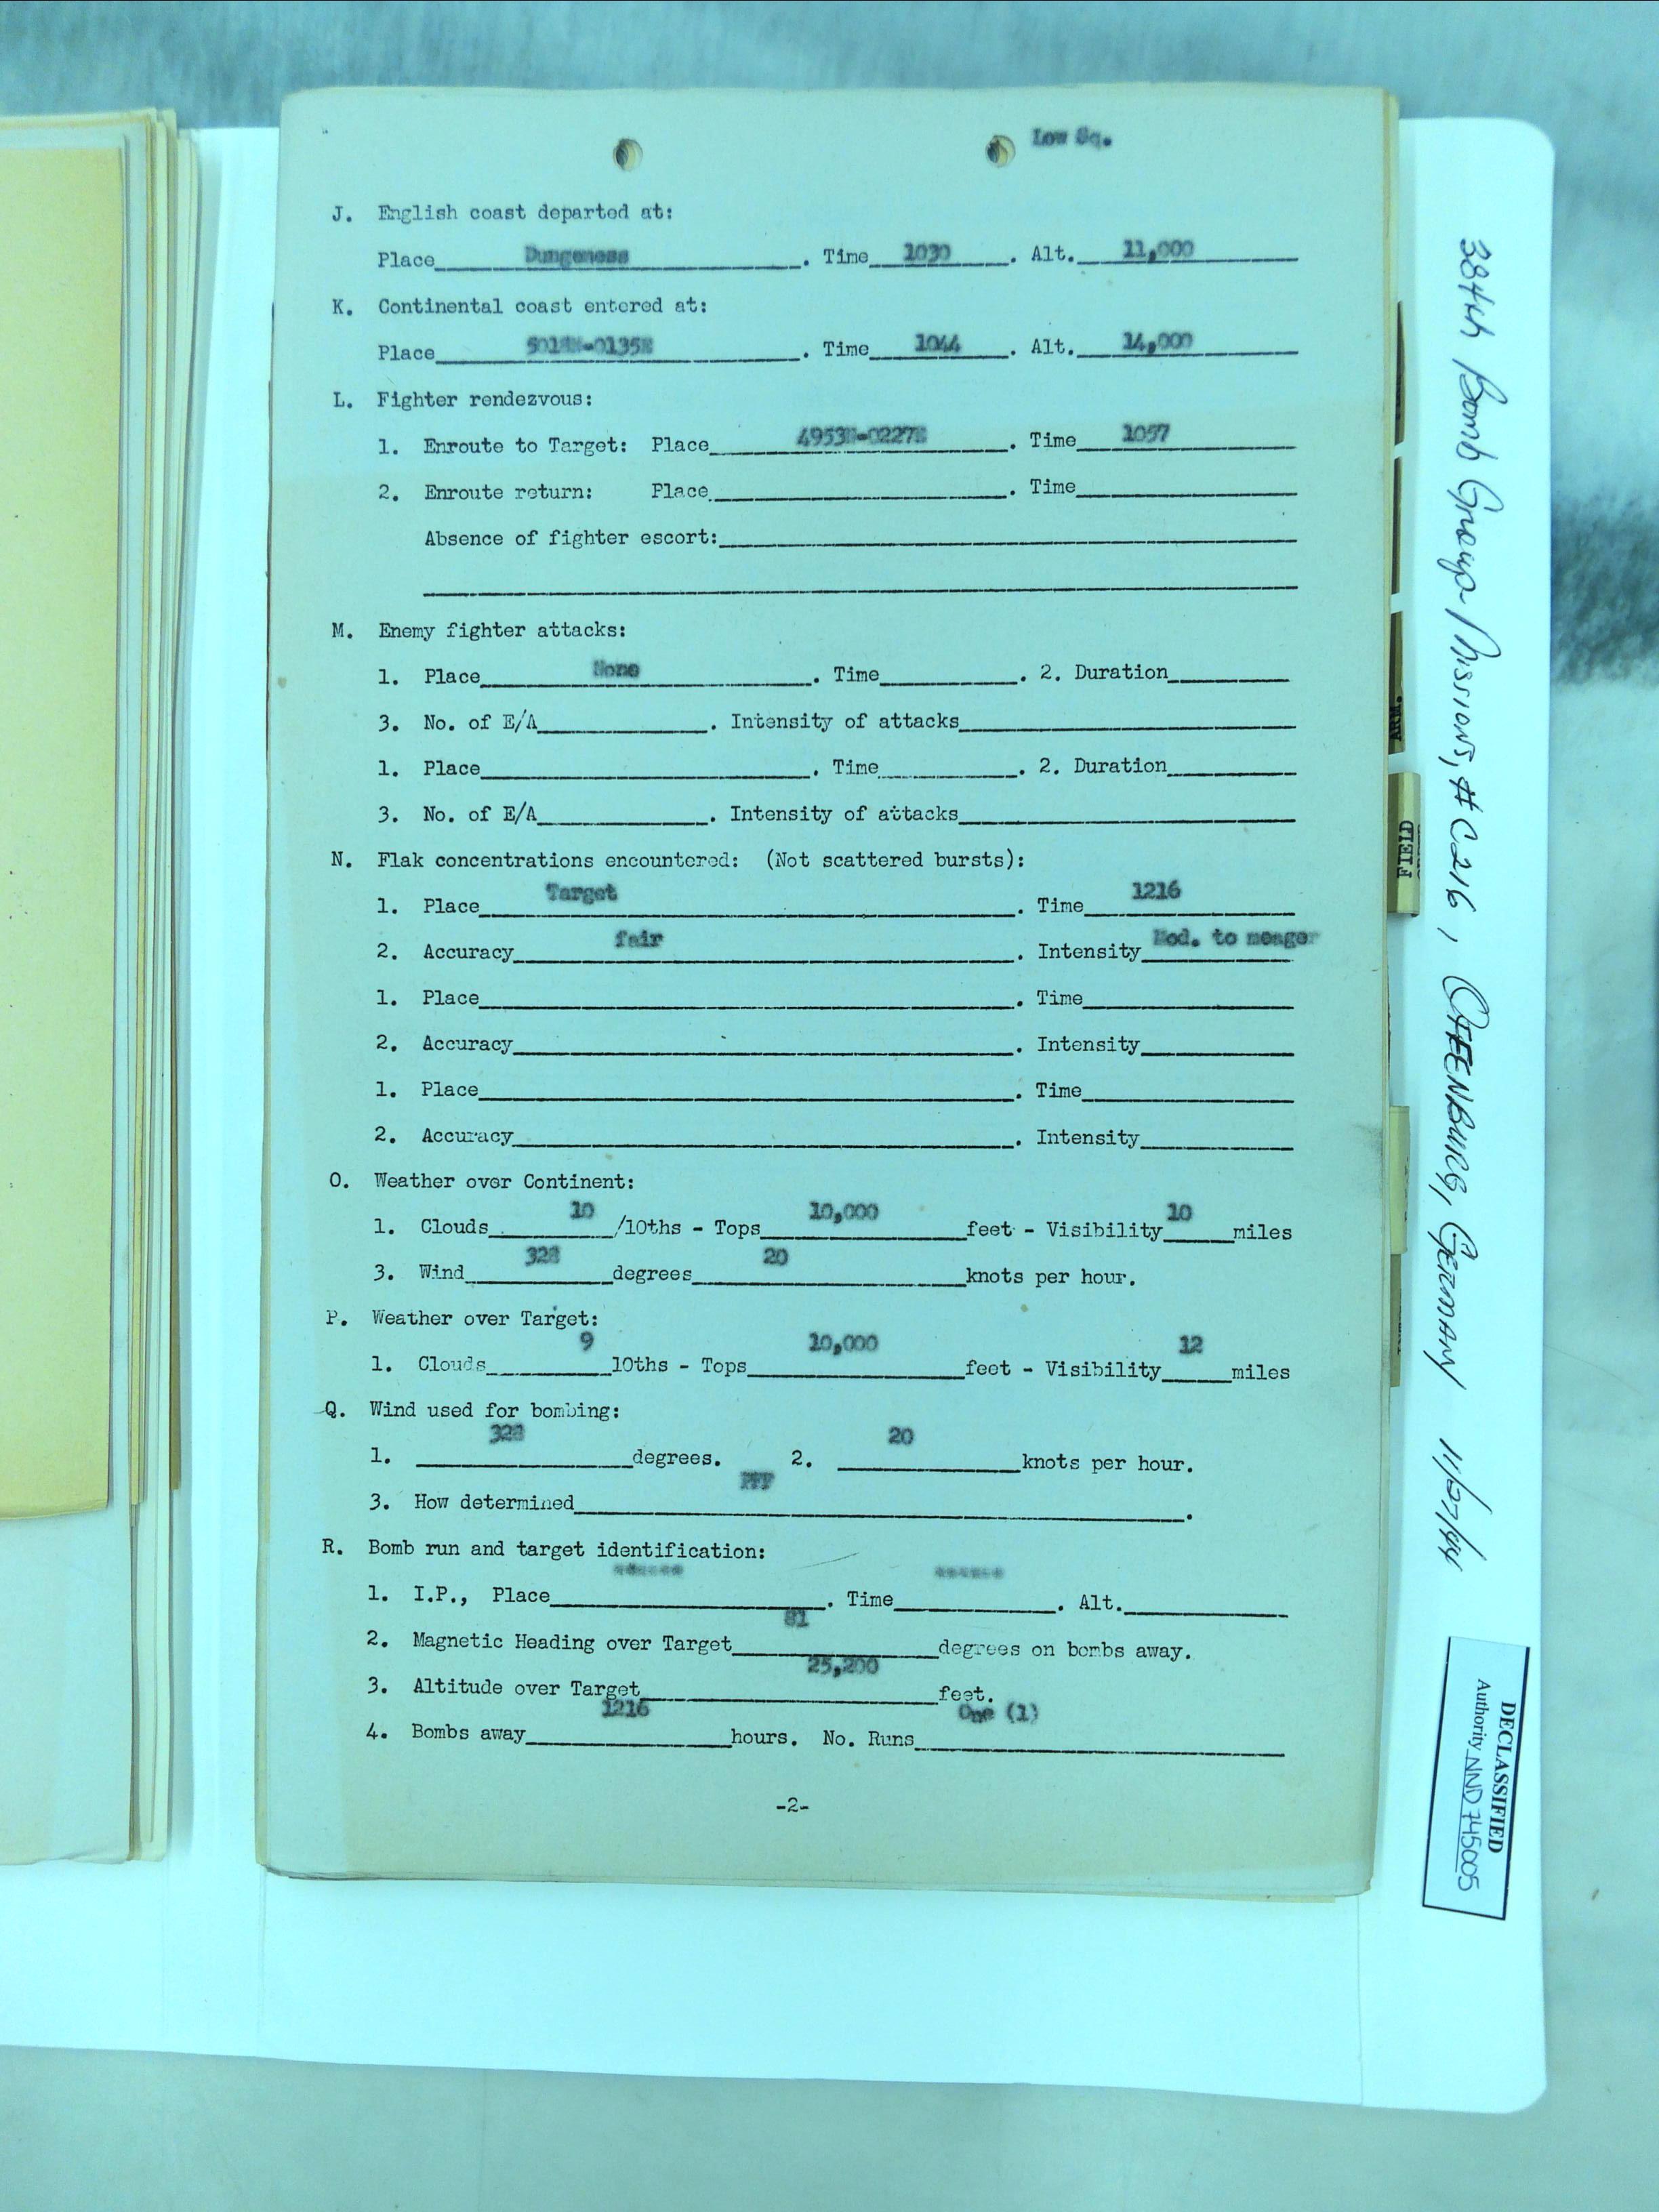 Low Sq.
J. English coast departed at:
Place Dungeness. Time 1030. Alt. 11,000
K. Continental coast entered at:
Place -0135E. Time 1044. Alt. 14,000
L. Fighter rendezvous:
1. Enroute to Target: Place 4953N-0227E. Time 1057
2. Enroute return: Place. Time
Absence of fighter escort:
M. Enemy fighter attacks:
1. Place None. Time. 2. Duration
3. No. of E/A. Intensity of attacks
1. Place. Time. 2. Duration
3. No. of E/A. Intensity of attacks
N. Flak concentrations encountered: (Not scattered bursts):
1. Place Target. Time 1216
2. Accuracy fair. Intensity Mod. to meager
1. Place. Time
2. Accuracy. Intensity
1. Place. Time
2. Accuracy. Intensity
O. Weather over Continent:
1. Clouds 10 /10ths - Tops 10,000 feet - Visibility 10 miles
3. Wind degrees 20 knots per hour.
P. Weather over Target:
1. Clouds 9 10ths - Tops 10,000 feet - Visibility 12 miles
Q. Wind used for bombing:
1. degrees. 2. 20 knots per hour.
3. How determined PFF.
R. Bomb run and target identification:
1. I.P., Place ******. Time ******. Alt.
2. Magnetic Heading over Target 81 degrees on bombs away.
3. Altitude over Target 25,200 feet.
4. Bombs away 1216 hours. No. Runs One (1)
-2-
ARM.
FIELD
384th Bomb Group Missions, #C216, OFFENBURG, GERMANY 11/27/44
DECLASSIFIED
Authority NND 745005